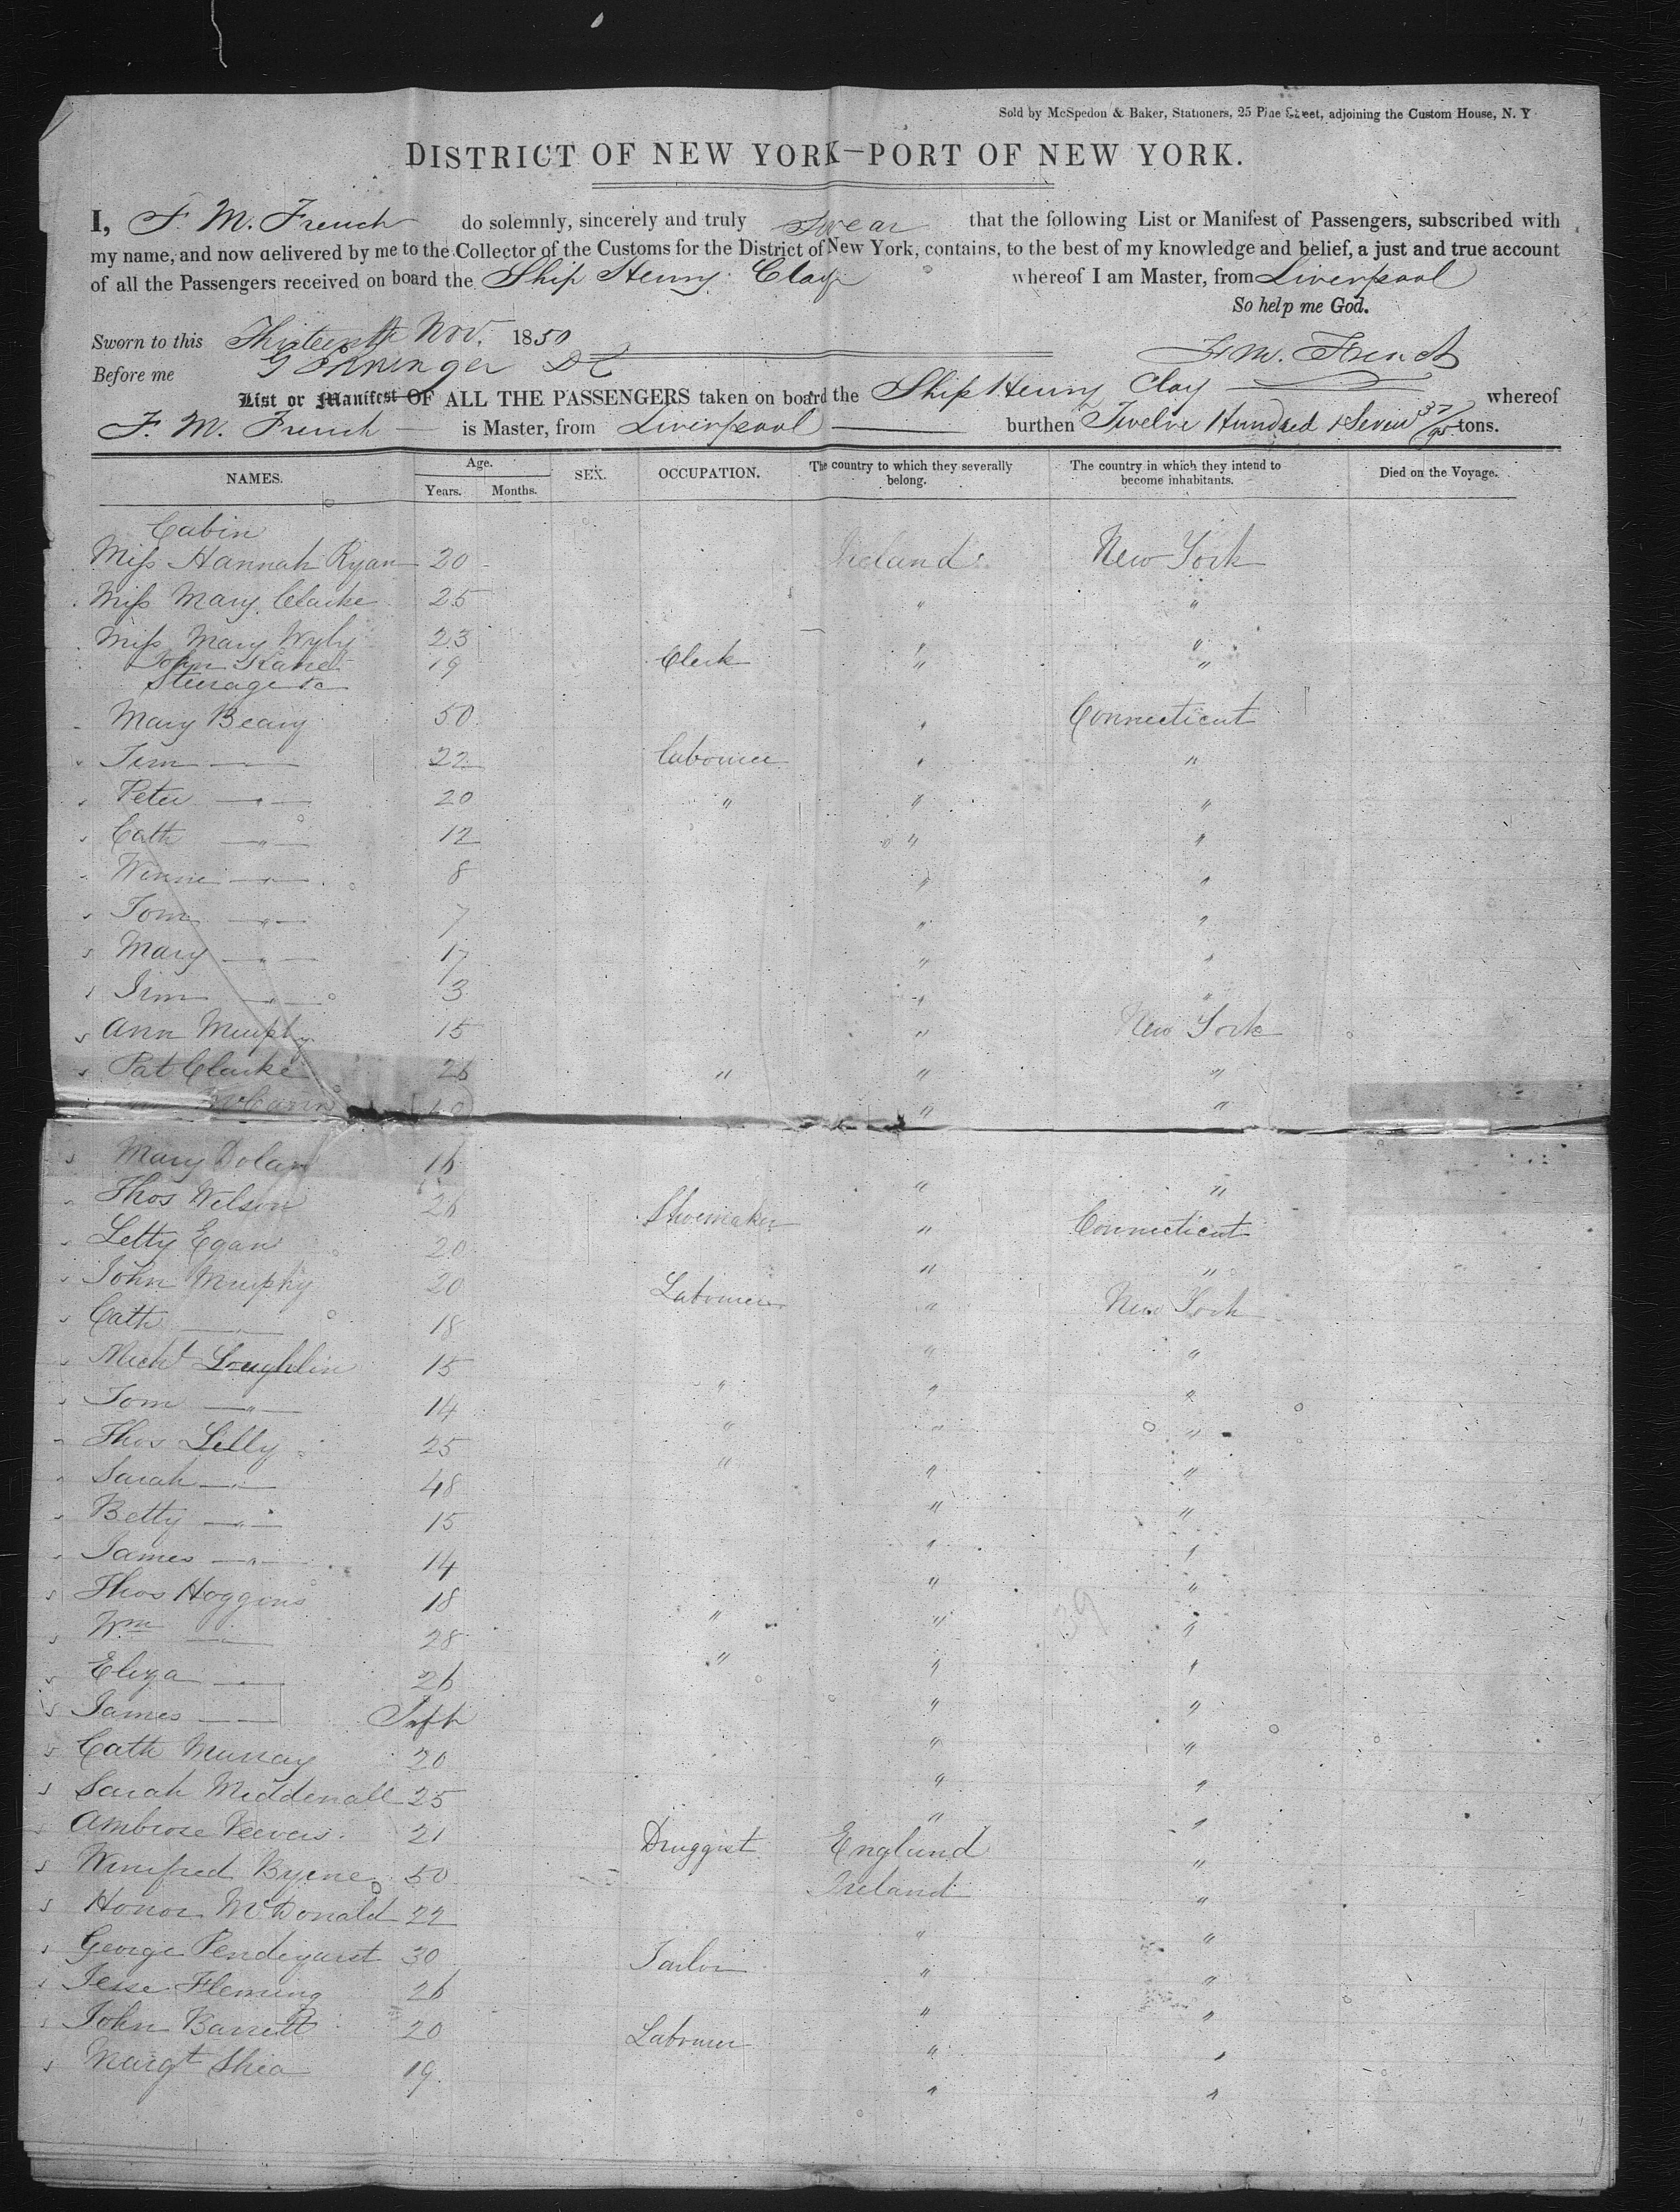 Sold by McSpedon & Baker, Stationers, 25 Pine Street, adjoining the Custom House, N. Y
DISTRICT OF NEW YORK—PORT OF NEW YORK.
I, F. M. French do solemnly, sincerely and truly Swear that the following List or Manifest of Passengers, subscribed with
my name, and now delivered by me to the Collector of the Customs for the District of New York, contains, to the best of my knowledge and belief, a just and true account
of all the Passengers received on board the Ship Henry Clay whereof I am Master, from Liverpool
So help me God.
Sworn to this Thirteenth Nov. 1850
F. M. French
Before me
List or Manifest OF ALL THE PASSENGERS taken on board the Ship Henry Clay whereof
F. M. French is Master, from Liverpool burthen Twelve Hundred & Seven 37/95 tons.
NAMES. Age. Years. Months. SEX. OCCUPATION. The country to which they severally belong. The country in which they intend to become inhabitants. Died on the Voyage.
Cabin
Miss Hannah Ryan 20 Ireland New York
Miss Mary Clarke 25 " "
Miss Mary Wyly 23 " "
John Kane 19 Clerk " "
Steerage
Mary Beary 50 " Connecticut
Tim — 22 Labourer " "
Peter —"— 20 " " "
Cath —"— 12 " "
Winne —"— 8 " "
Tom —"— 7 " "
Mary —"— 17 " "
Jim —"— 3 " "
Ann Murphy 15 " New York
Pat Clarke 26 " " "
" "
Mary Dolan 16 " "
Thos Wilson 26 Shoemaker " Connecticut
Letty Egan 20 " "
John Murphy 20 Labourer " New York
Cath —"— 18 " "
Michl Loughlin 15 " " "
Tom —"— 14 " " "
Thos Lilly 25 " " "
Sarah —"— 48 " "
Betty —"— 15 " "
James —"— 14 " "
Thos Hoggins 18 " " "
Wm —"— 28 " " "
Eliza — 26 " "
James — Inft " "
Cath Murray 20 " "
Sarah Middenall 25 " "
Ambrose Reeves 21 Druggist England "
Winifred Byrne 50 Ireland "
Honor McDonald 22 " "
George Pendegarst 30 Tailor " "
Jesse Fleming 26 " "
John Barrett 20 Labourer " "
Margt Shea 19 " "
39